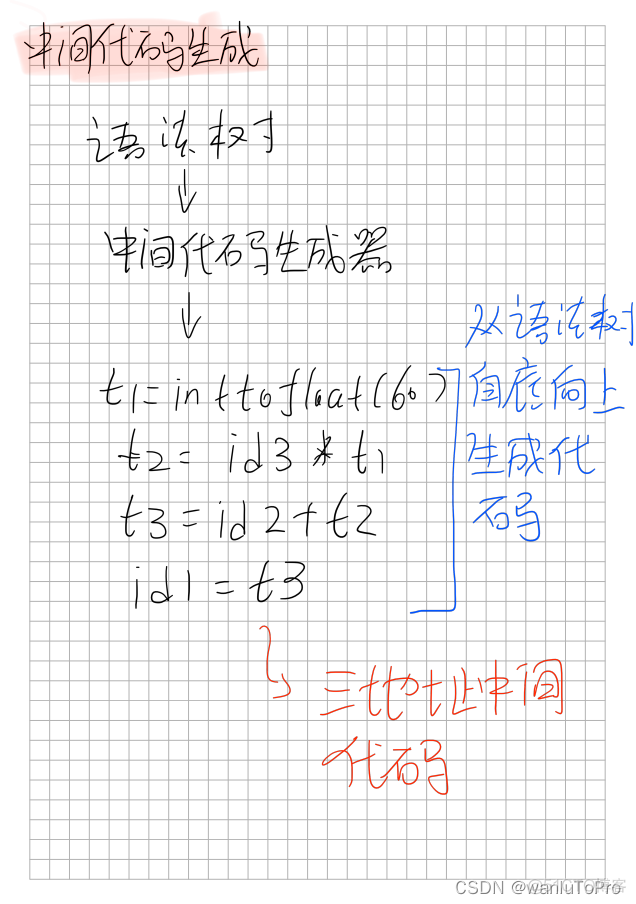 中间代码生成
语法树
↓
中间代码生成器
↓
t1=inttofloat(60)
t2=id3*t1
t3=id2+t2
id1=t3
从语法树
自底向上
生成代
码
三地址中间
代码
CSDN @wanluToPro